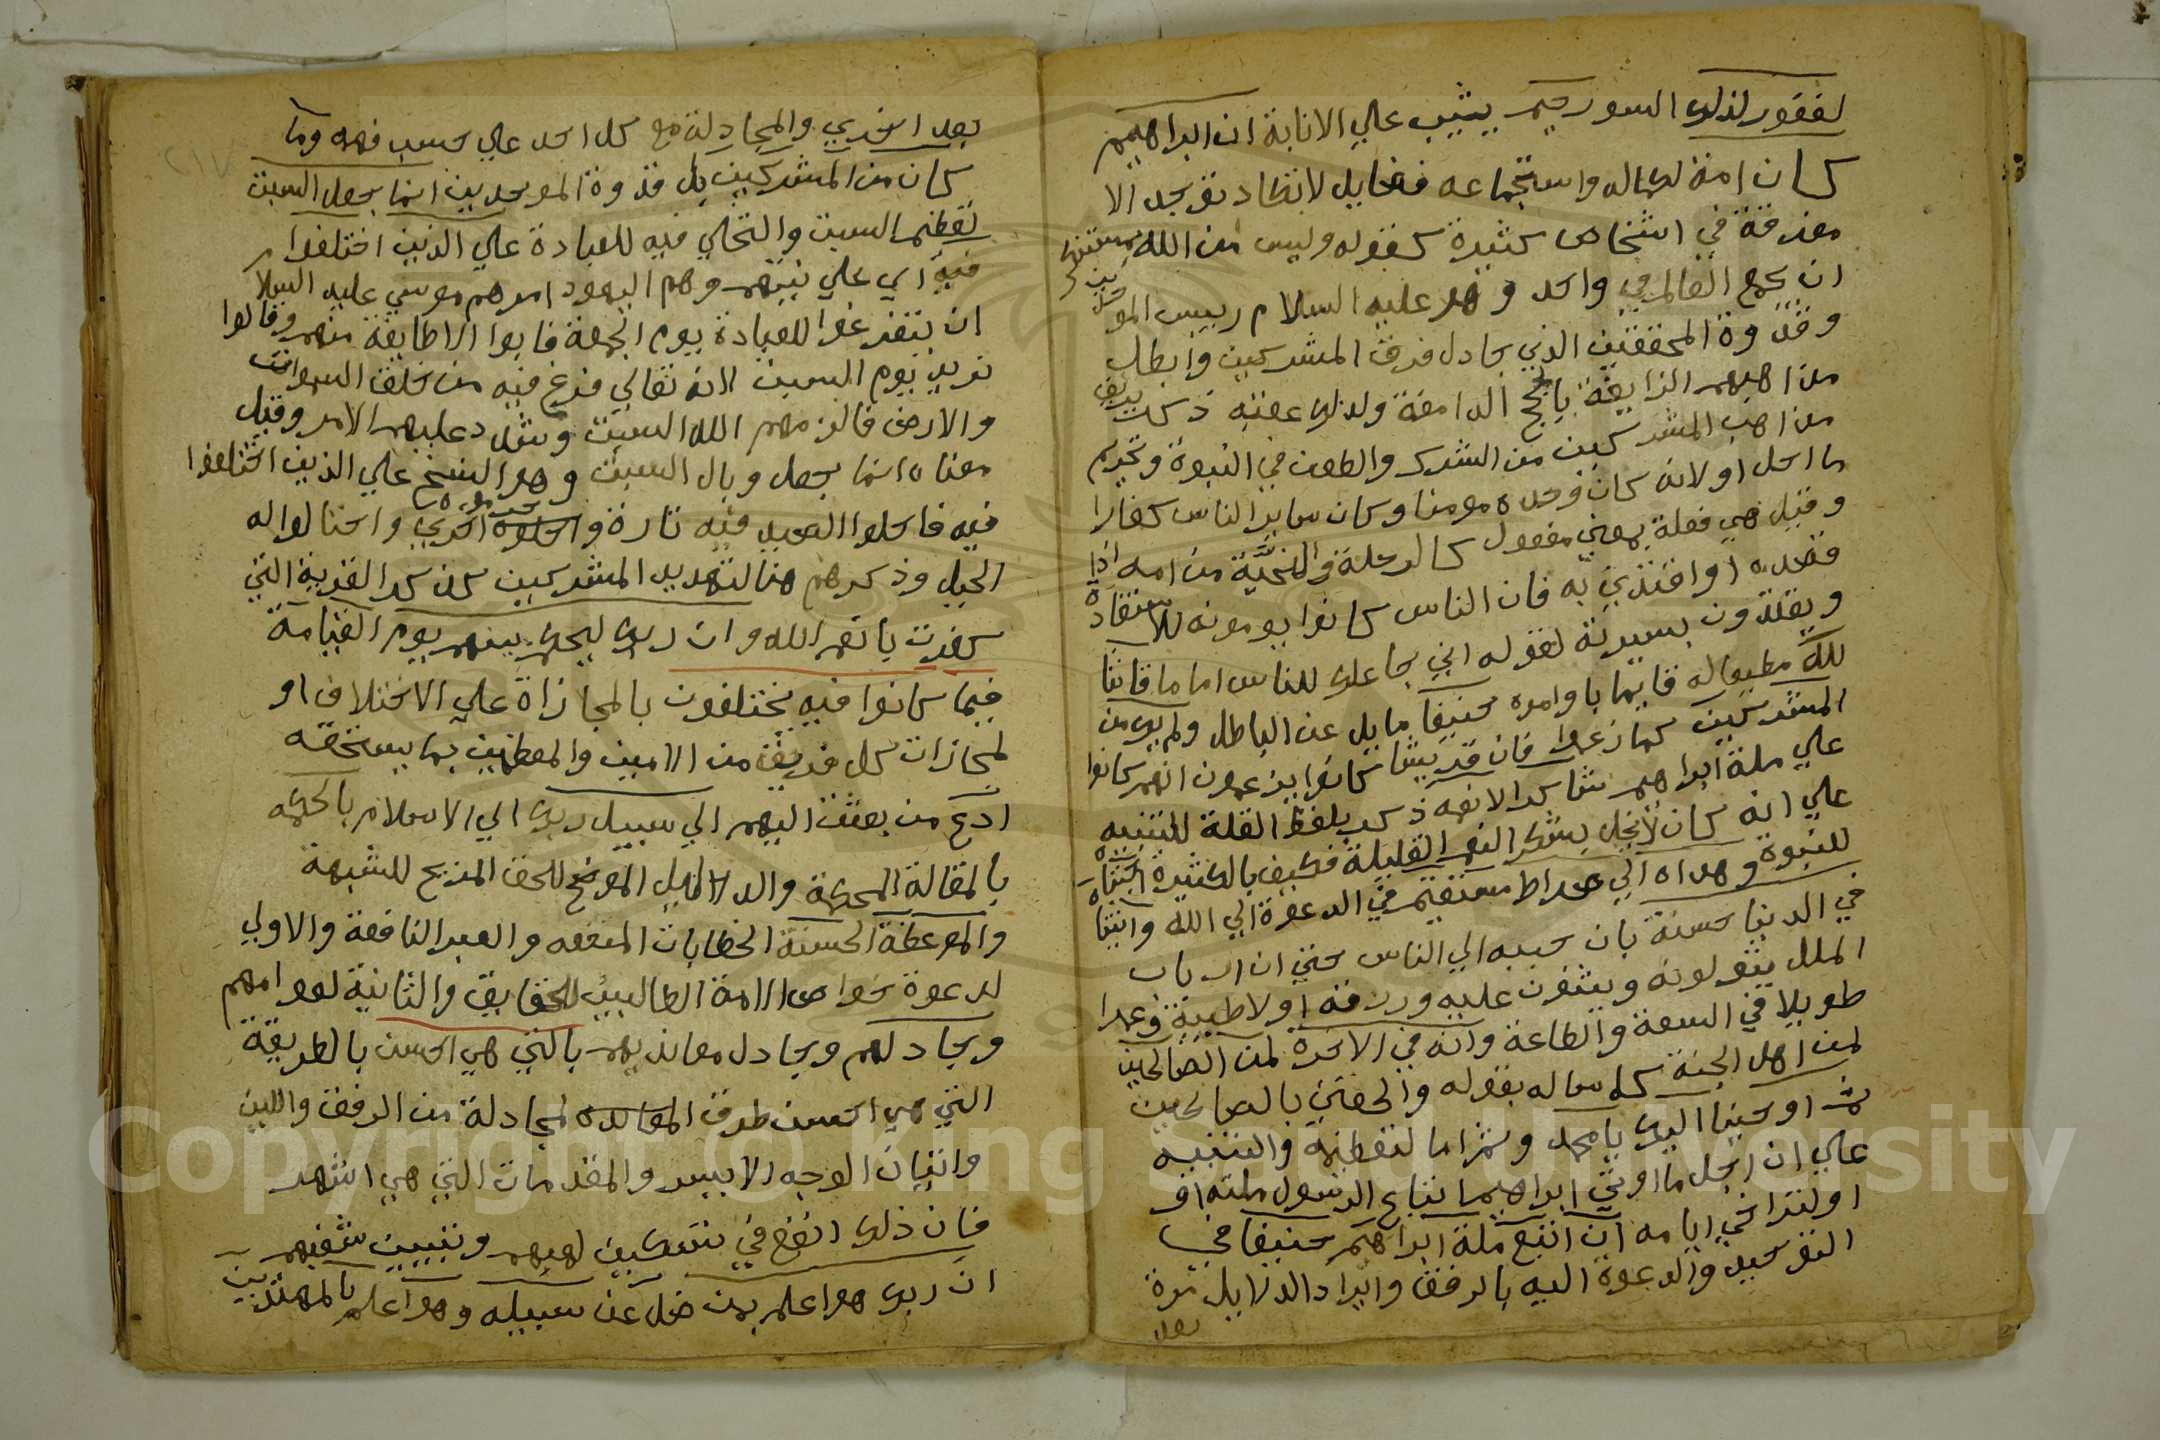 لغفور لذلك السو رحيم يثيب علي الانابة ان ابراهيم
كان امة لكماله واستجماعه فضايل لا تكاد توجد الا
مفرقة في اشخاص كثيرة كقوله وليس من الله بمستنكر
ان يجمع العالم في واحد وهو عليه السلام رييس الموحدين
وقدوة المحققين الذي جادل فرق المشركين وابطل
مذاهبهم الزايغة بالحجج الدامغة ولذلك عقبه ذكر بتزييف
مذاهب المشركين من الشرك والطعن في النبوة وتحريم
ما احل او لانه كان وحده مومنا وكان ساير الناس كفارا
وقيل هي فعلة بمعني مفعول كالرحلة والنخبة من امه اذا
قصده او اقتدي به فان الناس كانوا يومونه للاستفادة
ويقتدون بسيرته لقوله اني جاعلك للناس اماما قانتا
لله مطيعا له قايما باوامره حنيفا مايل عن الباطل ولم يك من
المشركين كما زعموا فان قريشا كانوا يزعمون انهم كانوا
علي ملة ابراهيم شاكرا لانعمه ذكر بلفظ القلة للتنبيه
علي انه كان لا يخل بشكر النعم القليلة فكيف بالكثيرة اجتباه
للنبوة وهداه الي صراط مستقيم في الدعوة الي الله واتينا
في الدنيا حسنة بان حببه الي الناس حتي ان ارباب
الملل يتولونه ويثنون عليه ورزقه اولا طيبة وعمرا
طويلا في السعة والطاعة وانه في الاخرة لمن الصالحين
لمن اهل الجنة كما ساله بقوله والحقني بالصالحين
ثم اوحينا اليك يا محمد وثم اما لتعظيمه والتنبيه
علي ان اجل ما اوتي ابراهيم اتباع الرسول ملته او
او لتراخي ايامه ان اتبع ملة ابراهيم حنيفا في
التوحيد والدعوة اليه بالرفق وايراد الدلايل مرة
بعد
٢١٧
بعد اخري والمجادلة مع كل احد علي حسب فهمه وما
كان من المشركين بل قدوة الموحدين انما جعل السبت
تعظيم السبت والتخلي فيه للعبادة علي الذين اختلفوا
فيه اي علي نبيهم وهم اليهود امرهم موسي عليه السلام
ان يتفرغوا للعبادة يوم الجمعة فابوا الا طايفة منهم وقالوا
نريد يوم السبت لانه تعالي فرغ فيه من خلق السموات
والارض فالزمهم الله السبت وشدد عليهم الامر وقيل
معناه انما جعل وبال السبت وهو المسخ علي الذين اختلفوا
فيه فاحلوا الصيد فيه تارة وحرموه اخري واحتالوا له
الحيل وذكرهم هنا لتهديد المشركين كذكر القرية التي
كفرت بانعم الله وان ربك ليحكم بينهم يوم القيامة
فيما كانوا فيه يختلفون بالمجازاة علي الاختلاف او
لمجازات كل فريق من الابين والمعظمين بما يستحقه
ادع من بعثت اليهم الي سبيل ربك الي الاسلام بالحكمة
بالمقالة المحكمة والدلايل الموضح للحق المزيح للشبهة
والموعظة الحسنة الخطابات المنعه والعبر النافعة والاولي
لدعوة خواص الامة الطالبين للحقايق والثانية لعوامهم
وجادلهم وجادل معانديهم بالتي هي احسن بالطريقة
التي هي احسن طرق لمجادلة من الرفق واللين
واتيان الوجه الايسر والمقدمات التي هي اشهر
فان ذلك انفع في تسكين لهبهم وتبيين شغبهم
ان ربك هو اعلم بمن ضل عن سبيله وهو اعلم بالمهتدين
Copyright © King Saud University